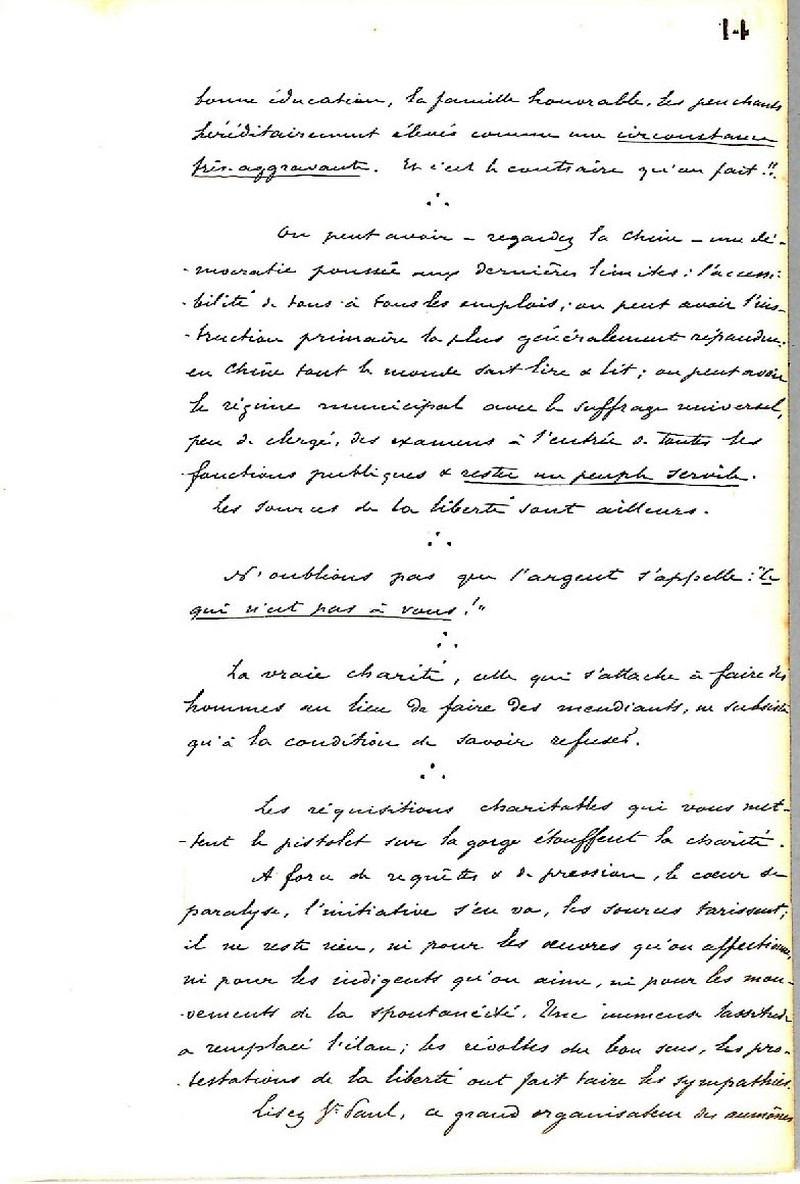 14
bonne éducation, la famille honorable, les penchants
héréditairement élevés comme une circonstance
très-aggravante. Et c'est le contraire qu'on fait!!
On peut avoir – regardez la Chine – une dé-
-mocratie poussée aux dernières limites: l'accessi-
-bilité de tous à tous les emplois; on peut avoir l'ins-
-truction primaire la plus généralement répandue:
en Chine tout le monde sait lire & lit; on peut avoir
le régime municipal avec le suffrage universel,
peu de clergé, des examens à l'entrée de toutes les
fonctions publiques & rester un peuple servile.
Les sources de la liberté sont ailleurs.
N'oublions pas que l'argent s'appelle: "Ce
qui n'est pas à vous!"
La vraie charité, celle qui s'attache à faire des
hommes au lieu de faire des mendiants, ne subsiste
qu'à la condition de savoir refuser.
Les réquisitions charitables qui vous met-
-tent le pistolet sur la gorge étouffent la charité.
A force de requêtes & de pression, le cœur se
paralyse, l'initiative s'en va, les sources tarissent;
il ne reste rien, ni pour les œuvres qu'on affectionne,
ni pour les indigents qu'on aime, ni pour les mou-
-vements de la spontanéité. Une immense lassitude
a remplacé l'élan; les révoltes du bon sens, les pro-
-testations de la liberté ont fait taire les sympathies.
Lisez St Paul, ce grand organisateur des aumônes